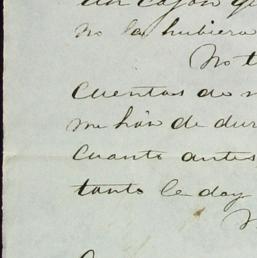 un cajon q
no la hubiera
No t
cuentas de m
me hán de dur
cuanto antes
tanto le doy